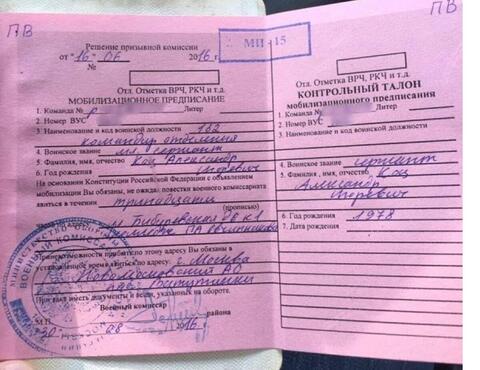 ПВ
Решение призывной комиссии
от "16" 06 2016 г.
№
Отл. Отметка ВРЧ, РКЧ и т.д.
МОБИЛИЗАЦИОННОЕ ПРЕДПИСАНИЕ
1. Команда № Литер
2. Номер ВУС
3. Наименование и код воинской должности 182
командир отделения
4. Воинское звание мл. сержант
5. Фамилия, имя, отчество Коц Александр
Игоревич
6. Год рождения
На основании Конституции Российской Федерации с объявлением
мобилизации Вы обязаны, не ожидая повестки военного комиссариата
явиться в течении
(прописью)
м. Бибиревская
Вы обязаны
время явиться по адресу: г. Москва
Новомосковский АО
При явке иметь документы и вещи, указанных на обороте.
Военный комиссар
района
М.П.
"30" 08 2016 г.
МП - 15
ПВ
Отл. Отметка ВРЧ, РКЧ и т.д.
КОНТРОЛЬНЫЙ ТАЛОН
мобилизационного предписания
1. Команда № Литер
2. Номер ВУС
3. Наименование и код воинской должности
4. Воинское звание сержант
5. Фамилия, имя, отчество Коц
Александр
Игоревич
6. Год рождения 1978
7. Дата рождения